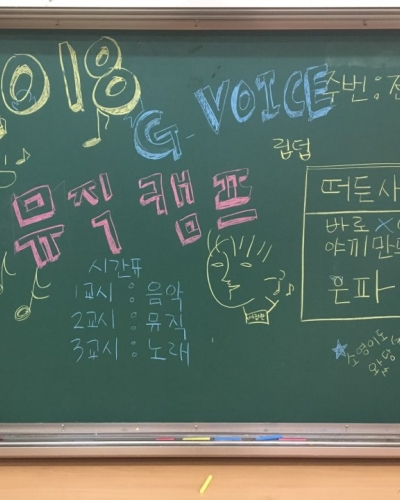 2018
G-VOICE
주번:전
립덥
뮤직캠프
떠든사
시간표
바로X
1교시 : 음악
야끼만두
2교시 : 뮤직
훈파
3교시 : 노래